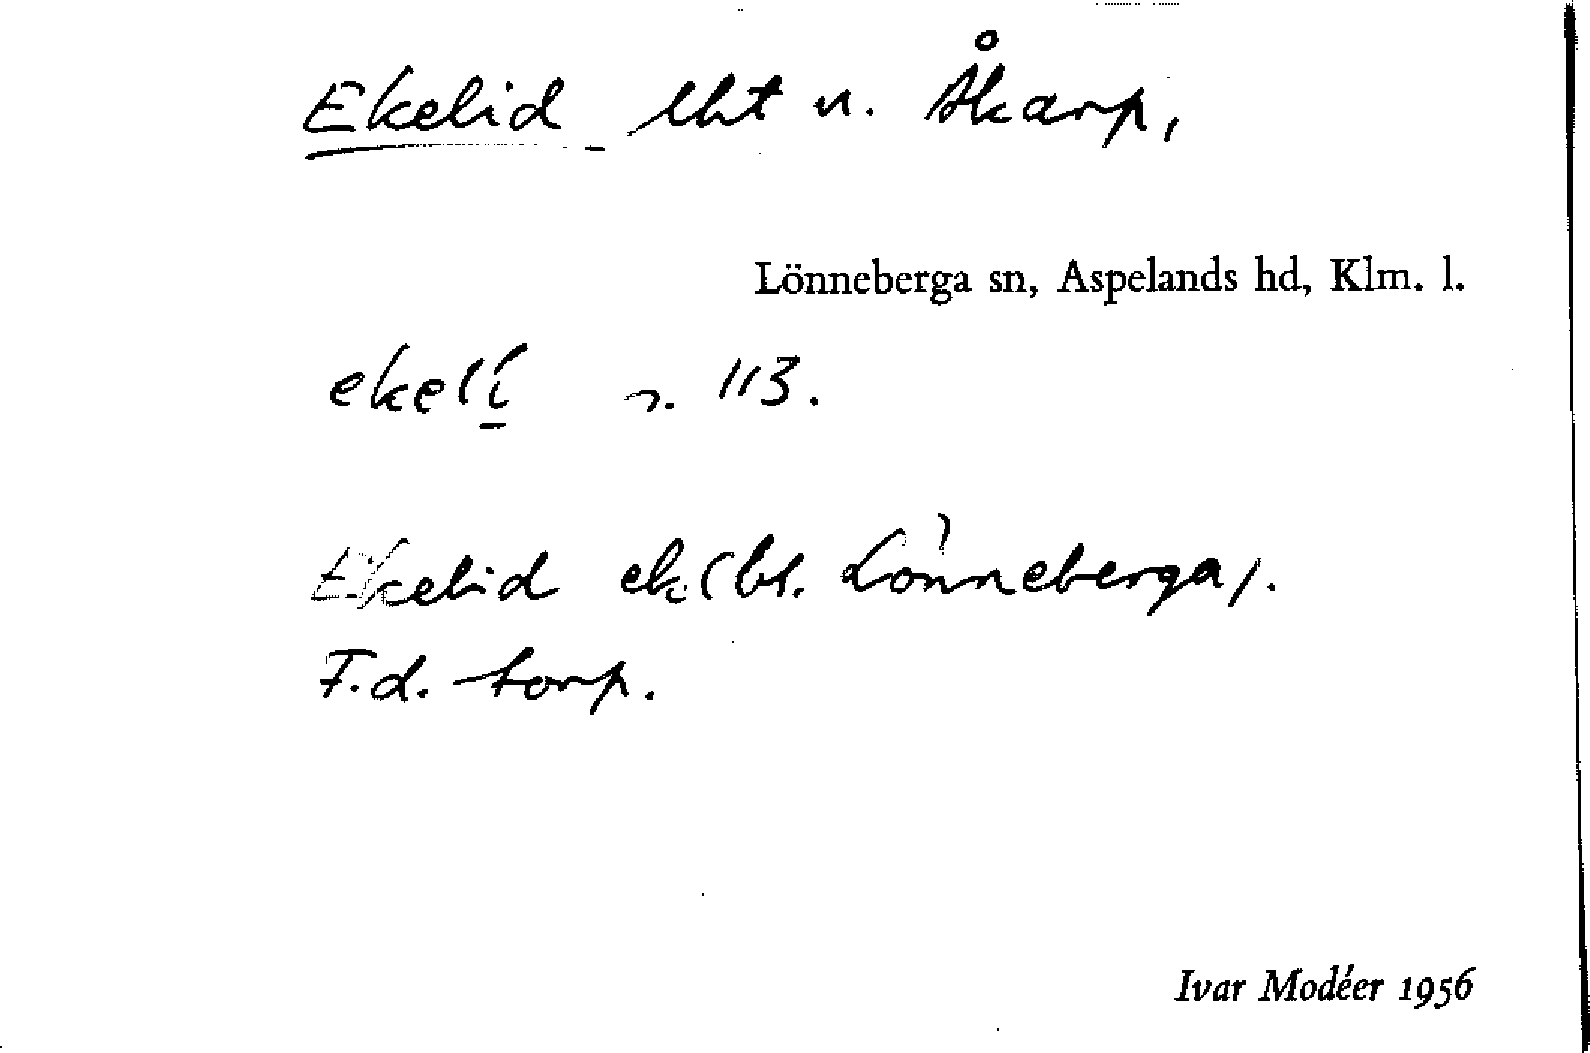 Ekelid lht u. Åkarp,
Lönneberga sn, Aspelands hd, Klm. l.
ekelí 113.
Ekelid ek (bl. Lönneberga).
F.d. torp.
Ivar Modéer 1956